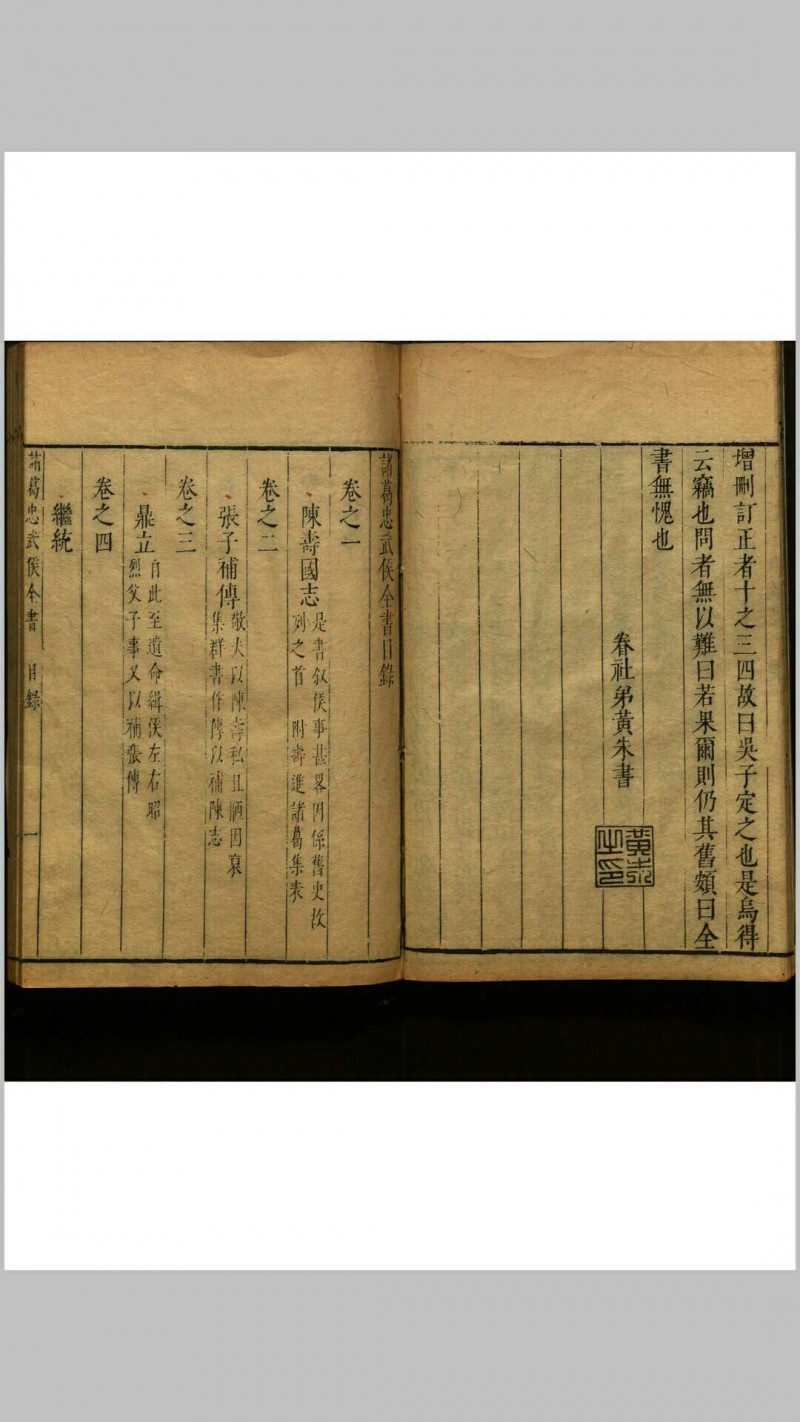 增刪訂正者十之三四故曰吳子定之也是烏得
云竊也問者無以難曰若果爾則仍其舊顏曰全
書無愧也
春社弟黃朱書
諸葛忠武侯全書目錄
卷之一
陳壽國志 是書叙侯事甚畧因係舊史故
列之首 附壽進諸葛集表
卷之二
張子補傳 敬夫以陳壽私且陋因裒
集群書作傳以補陳志
卷之三
鼎立 自此至遺命緝侯左右昭
烈父子事又以補張傳
卷之四
繼統
諸葛忠武侯全書 目錄 一